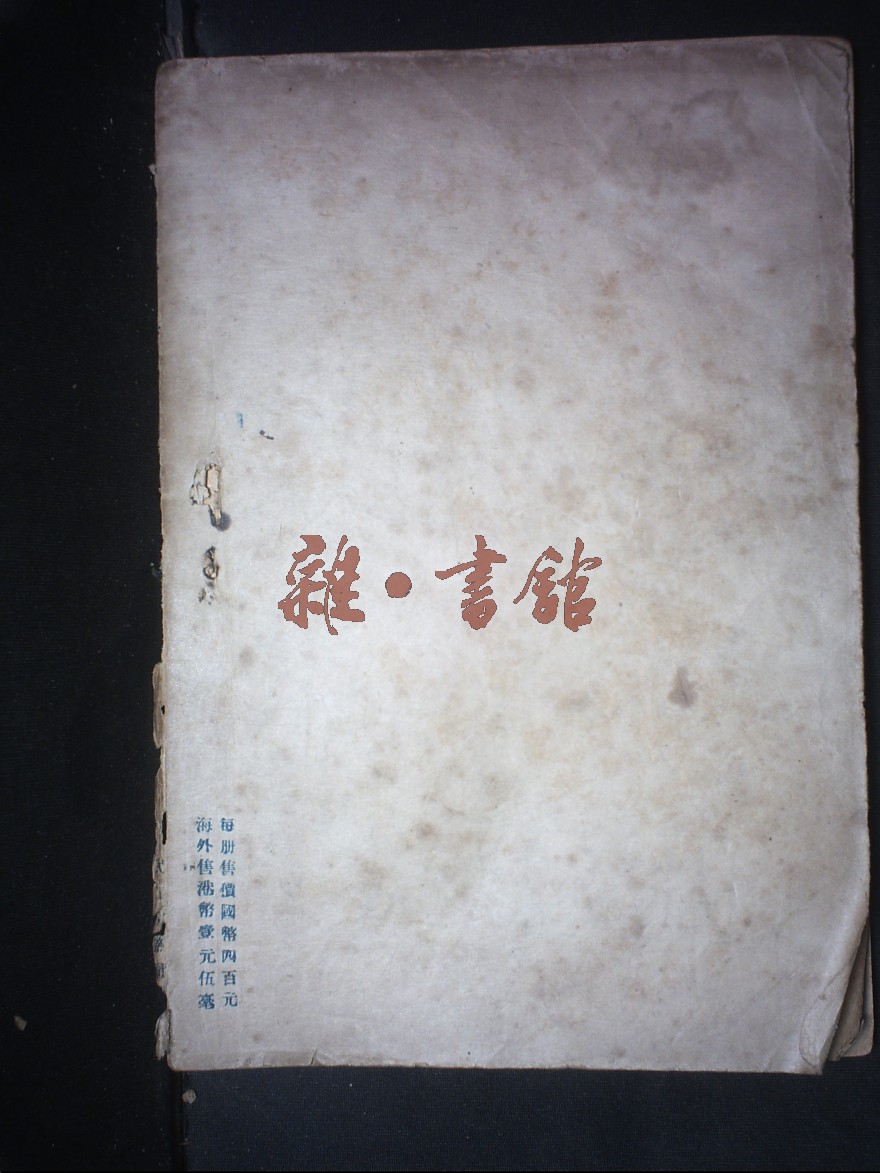 雜·書館
每册售價國幣四百元
海外售港幣壹元伍毫